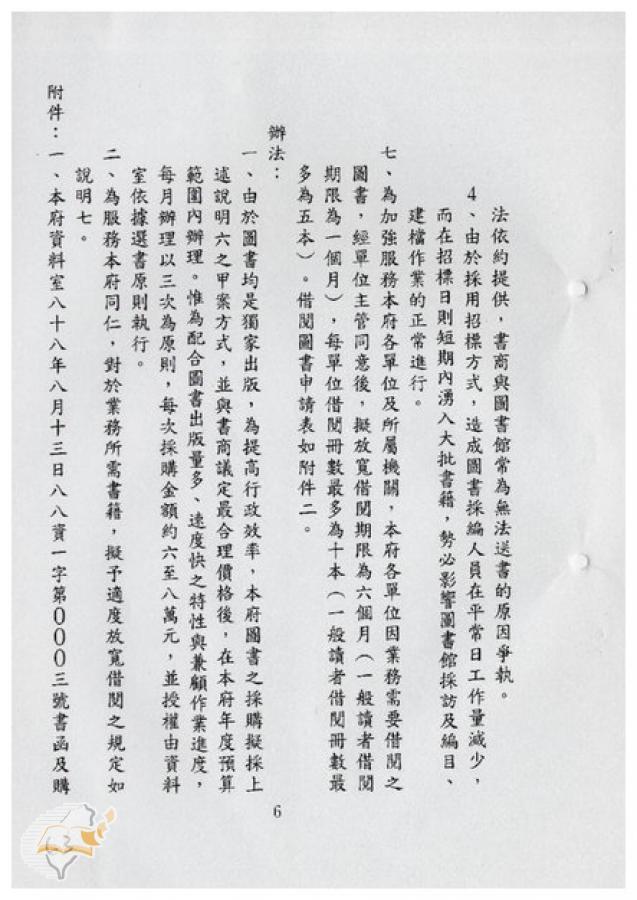 法依約提供，書商與圖書館常為無法送書的原因爭執。
4、由於採用招標方式，造成圖書採編人員在平常日工作量減少，
而在招標日則短期內湧入大批書籍，勢必影響圖書館採訪及編目、
建檔作業的正常進行。
七、為加強服務本府各單位及所屬機關，本府各單位因業務需要借閱之
圖書，經單位主管同意後，擬放寬借閱期限為六個月（一般讀者借閱
期限為一個月），每單位借閱冊數最多為十本（一般讀者借閱冊數最
多為五本）。借閱圖書申請表如附件二。
辦法：
一、由於圖書均是獨家出版，為提高行政效率，本府圖書之採購擬採上
述說明六之甲案方式，並與書商議定最合理價格後，在本府年度預算
範圍內辦理。惟為配合圖書出版量多、速度快之特性與兼顧作業進度，
每月辦理以三次為原則，每次採購金額約六至八萬元，並授權由資料
室依據選書原則執行。
二、為服務本府同仁，對於業務所需書籍，擬予適度放寬借閱之規定如
說明七。
附件：一、本府資料室八十八年八月十三日八八資一字第０００三號書函及購
6